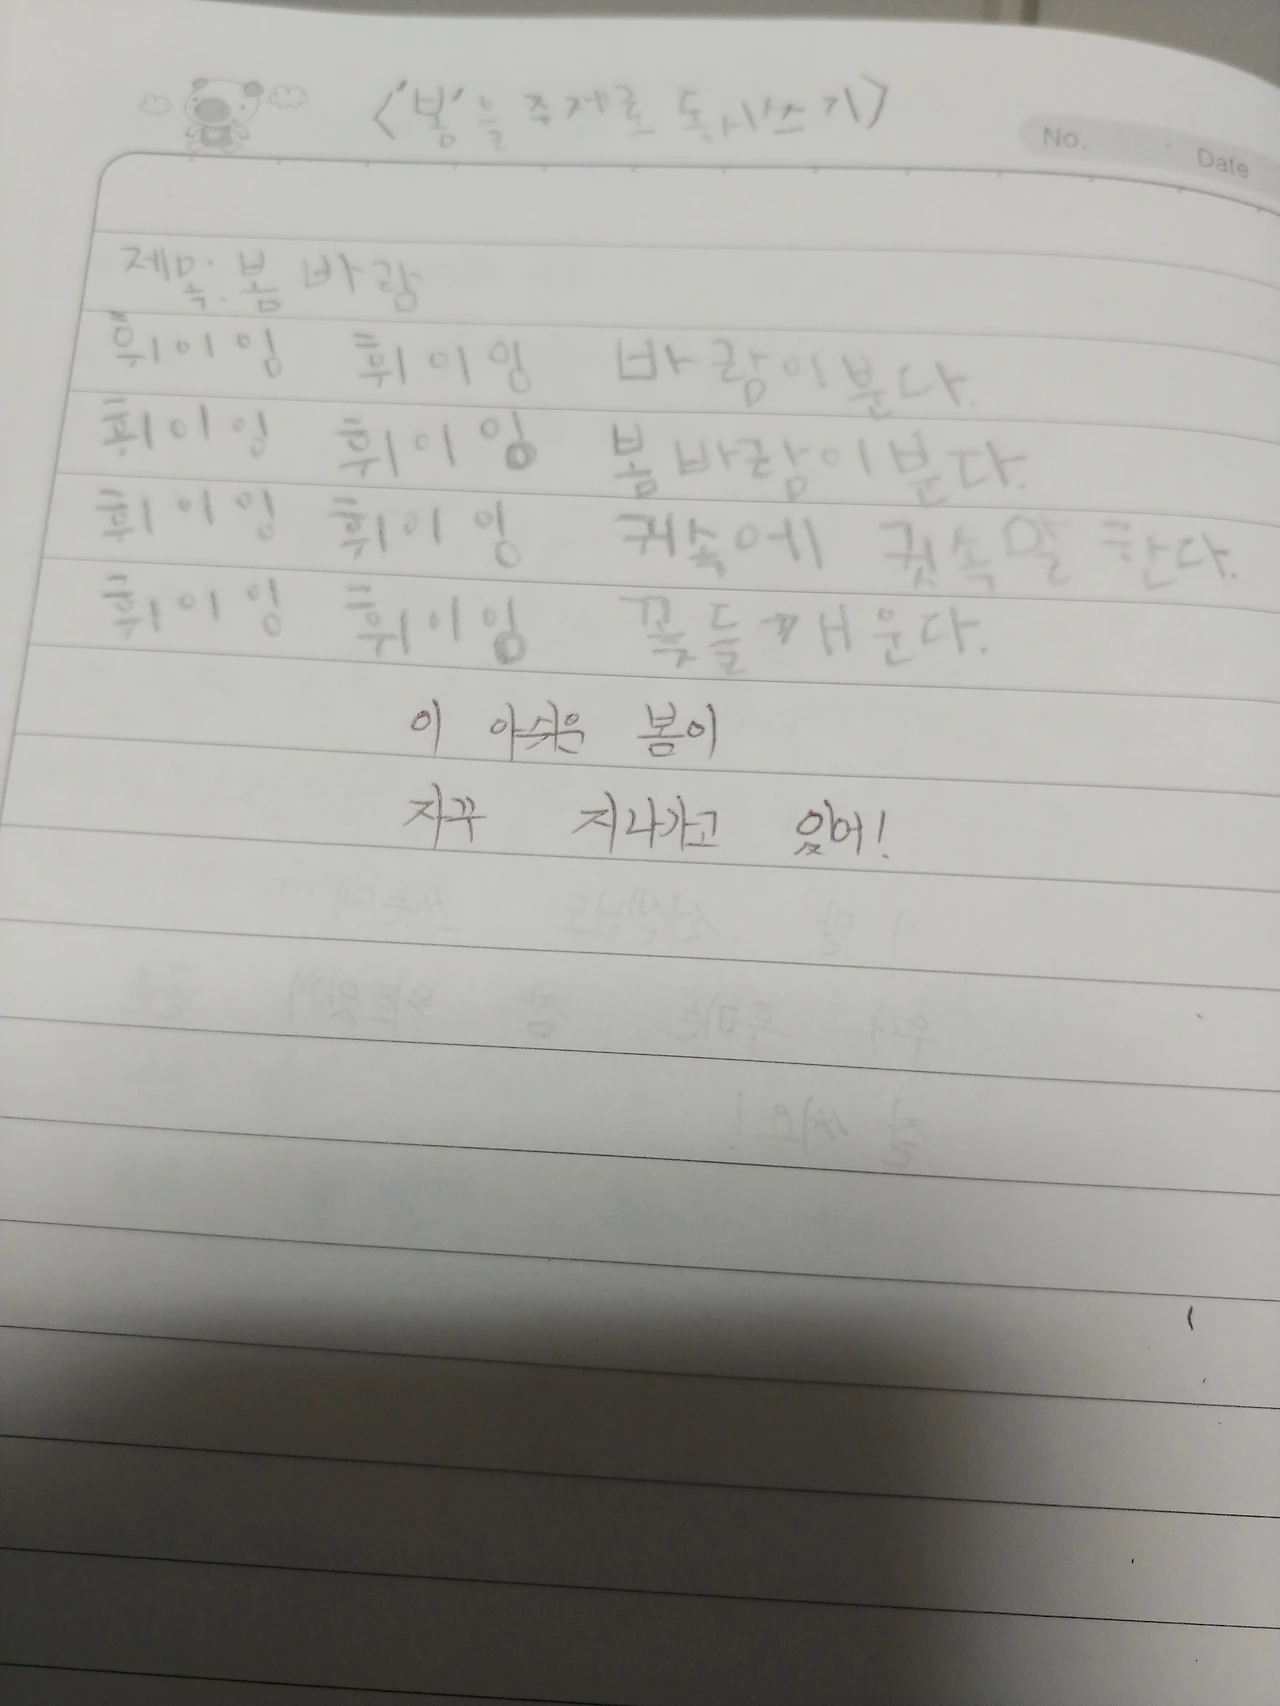 <'봄'을 주제로 동시쓰기>
No. Date
제목: 봄 바람
휘이잉 휘이잉 바람이분다.
휘이잉 휘이잉 봄바람이분다.
휘이잉 휘이잉 귀속에 귓속말 한다.
휘이잉 휘이잉 꽃들깨운다.
이 아쉬운 봄이
자꾸 지나가고 있어!